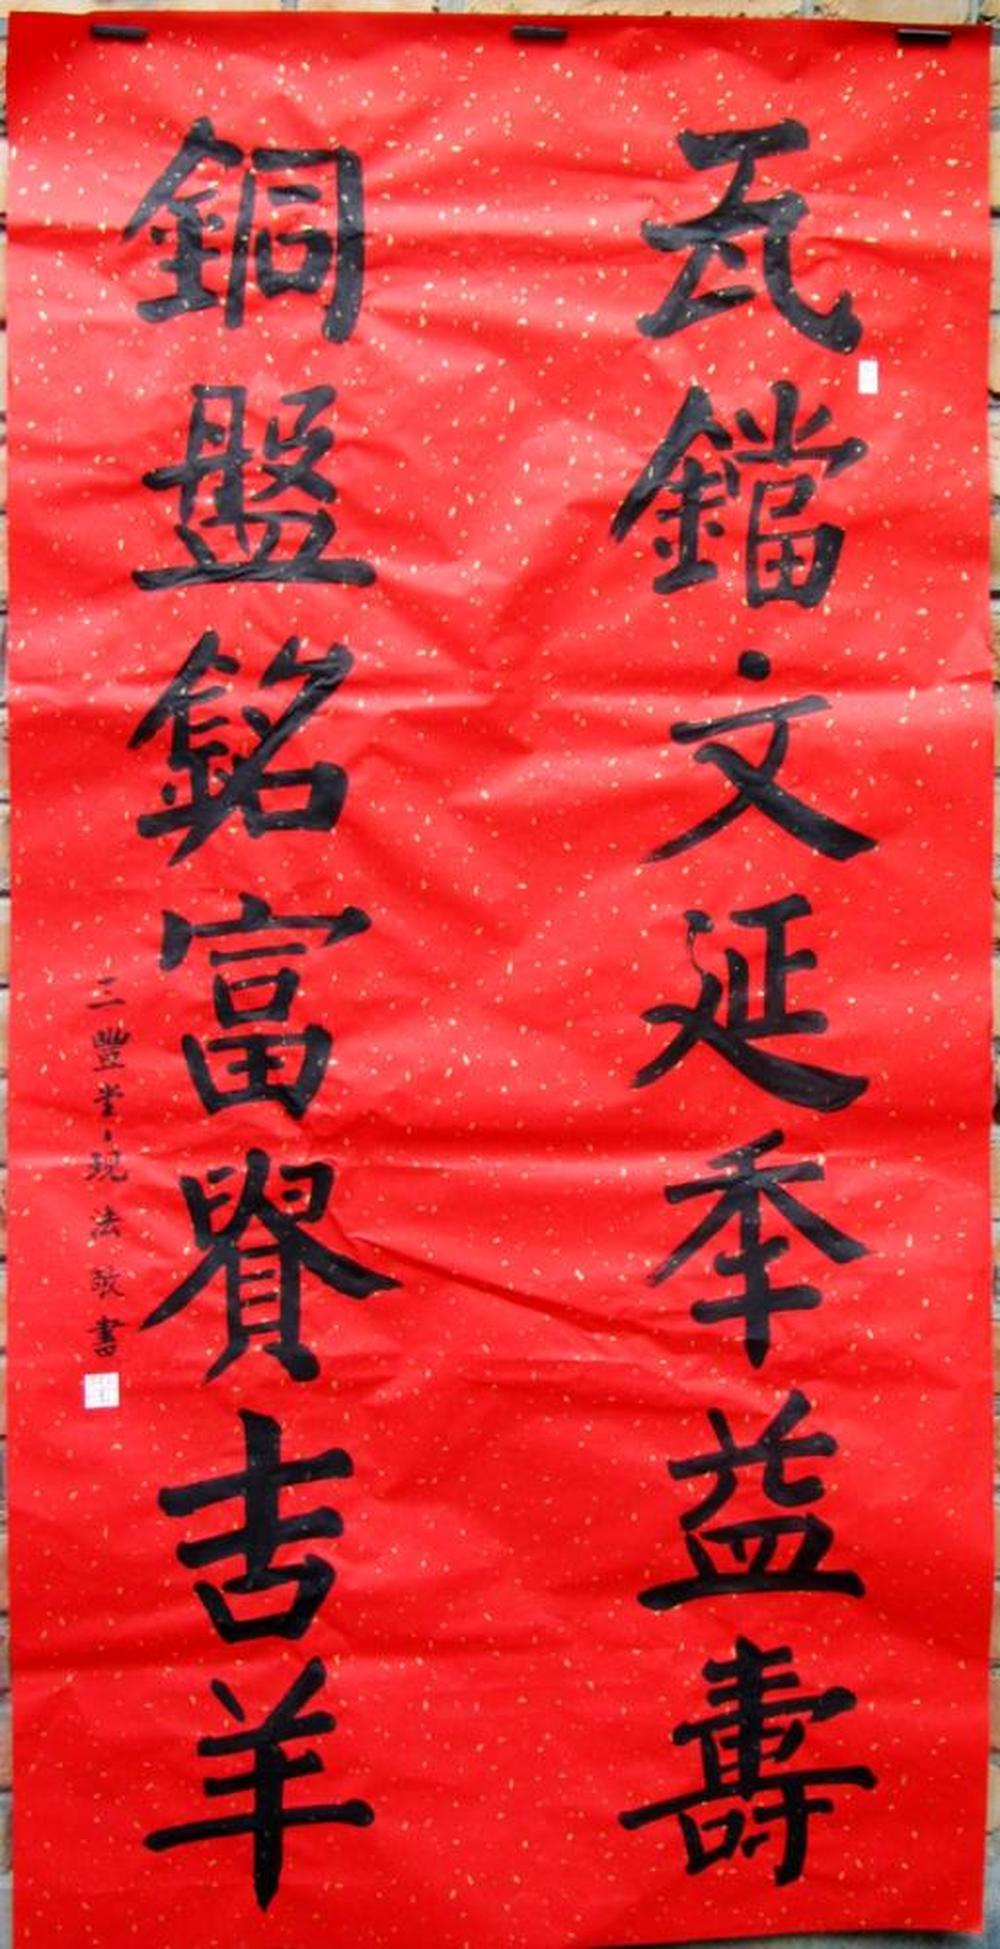 瓦鐺文延秊益壽
銅盤銘富貴吉羊
三豐堂、現法敬書